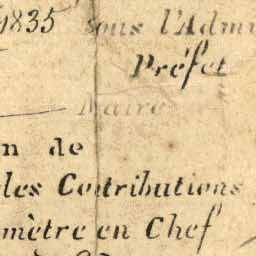 1835 sous l'Admi
Préfet
Maire
n de
les Contributions
mètre en Chef